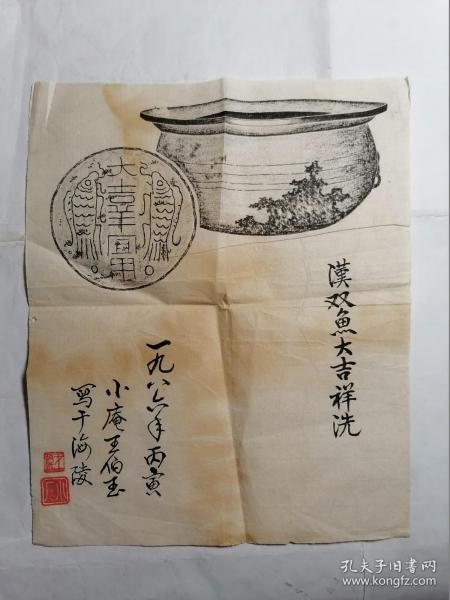 漢双魚大吉祥洗
一九八六年丙寅
小庵王伯玉
写于海陵
大吉羊
孔夫子旧书网
www.kongfz.com